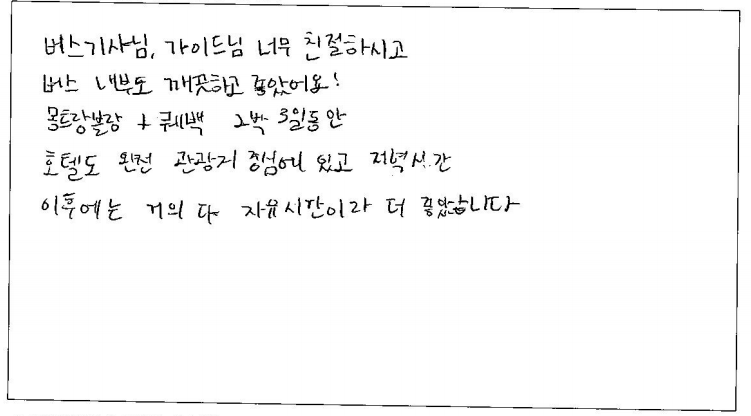 버스기사님, 가이드님 너무 친절하시고
버스 내부도 깨끗하고 좋았어요!
몽트랑블랑 + 퀘백 2박 3일동안
호텔도 완전 관광지 중심에 있고 저녁시간
이후에는 거의 다 자유시간이라 더 좋았습니다